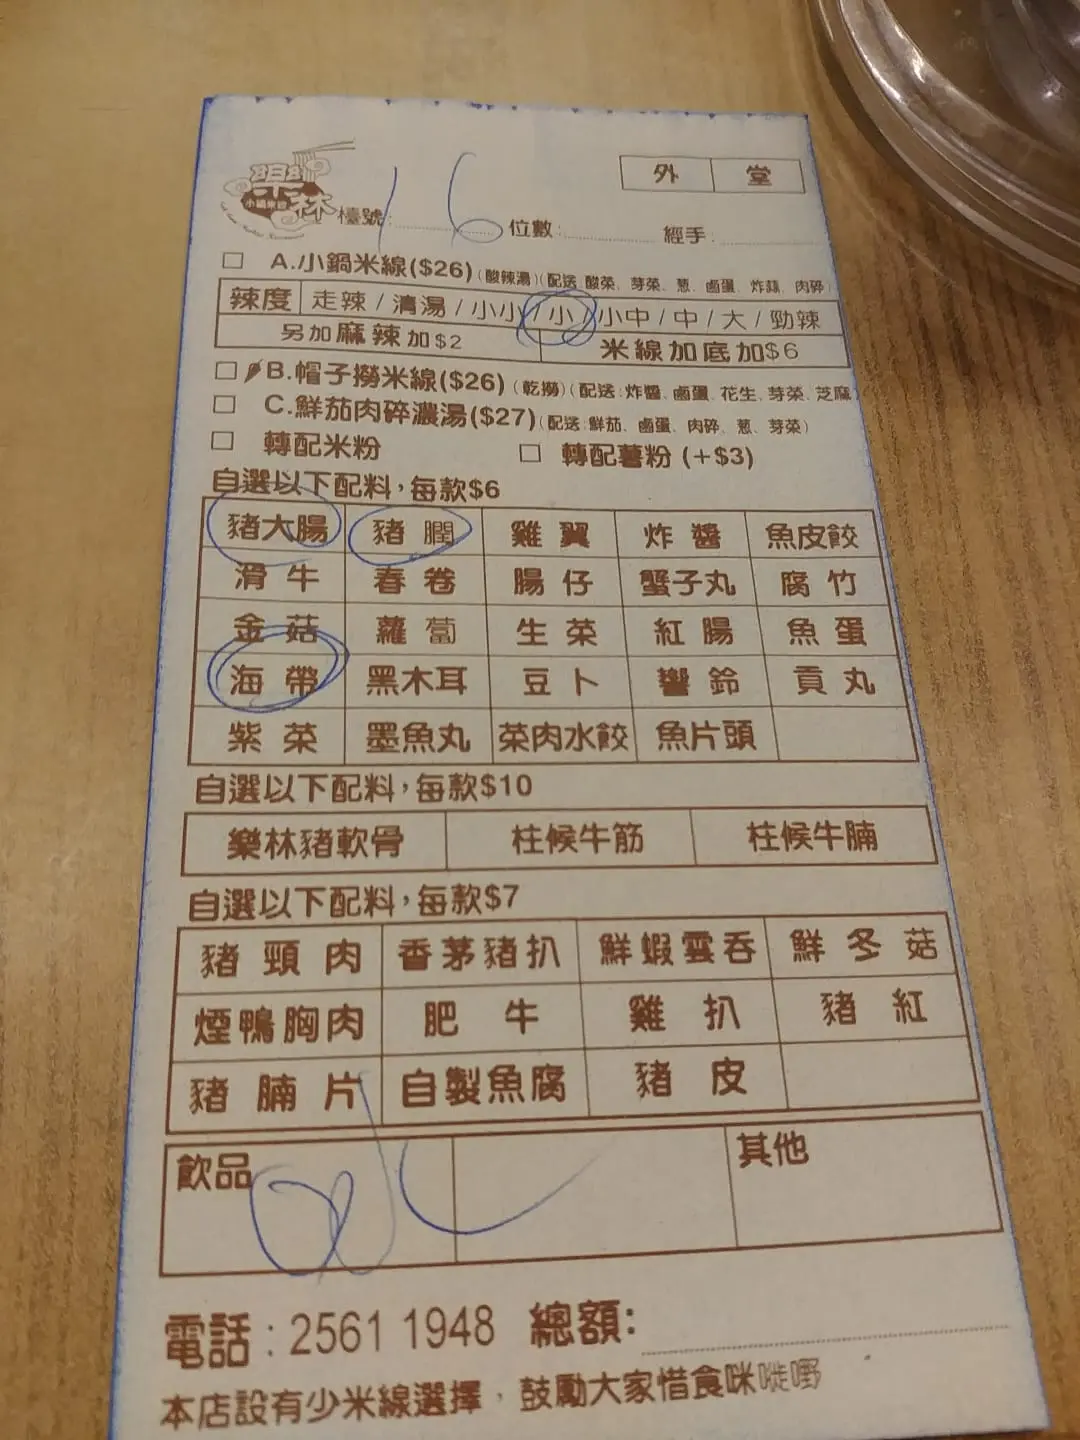 樂林
小鍋米線
外 堂
檯號: 16 位數: 經手:
A.小鍋米線($26)(酸辣湯)(配送:酸菜、芽菜、葱、鹵蛋、炸蒜、肉碎)
辣度 走辣 / 清湯 / 小小 / 小 / 小中 / 中 / 大 / 勁辣
另加麻辣加$2 米線加底加$6
B.帽子撈米線($26) (乾撈)(配送:炸醬、鹵蛋、花生、芽菜、芝麻)
C.鮮茄肉碎濃湯($27)(配送:鮮茄、鹵蛋、肉碎、葱、芽菜)
轉配米粉 轉配薯粉 (+$3)
自選以下配料，每款$6
豬大腸 豬膶 雞翼 炸醬 魚皮餃
滑牛 春卷 腸仔 蟹子丸 腐竹
金菇 蘿蔔 生菜 紅腸 魚蛋
海帶 黑木耳 豆卜 響鈴 貢丸
紫菜 墨魚丸 菜肉水餃 魚片頭
自選以下配料，每款$10
樂林豬軟骨 柱候牛筋 柱候牛腩
自選以下配料，每款$7
豬頸肉 香茅豬扒 鮮蝦雲吞 鮮冬菇
煙鴨胸肉 肥牛 雞扒 豬紅
豬腩片 自製魚腐 豬皮
飲品 其他
電話 : 2561 1948 總額:
本店設有少米線選擇，鼓勵大家惜食咪嘥嘢